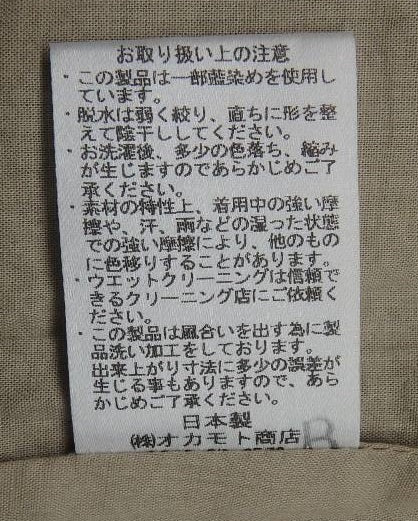 お取り扱い上の注意
・この製品は一部藍染めを使用し
ています。
・脱水は弱く絞り、直ちに形を整
えて陰干ししてください。
・お洗濯後、多少の色落ち、縮み
が生じますのであらかじめご了
承ください。
・素材の特性上、着用中の強い摩
擦や、汗、雨などの湿った状態
での強い摩擦により、他のもの
に色移りすることがあります。
・ウエットクリーニングは信頼で
きるクリーニング店にご依頼く
ださい。
・この製品は風合いを出す為に製
品洗い加工をしております。
出来上がり寸法に多少の誤差が
生じる事もありますので、あら
かじめご了承ください。
日本製
㈱オカモト商店
R